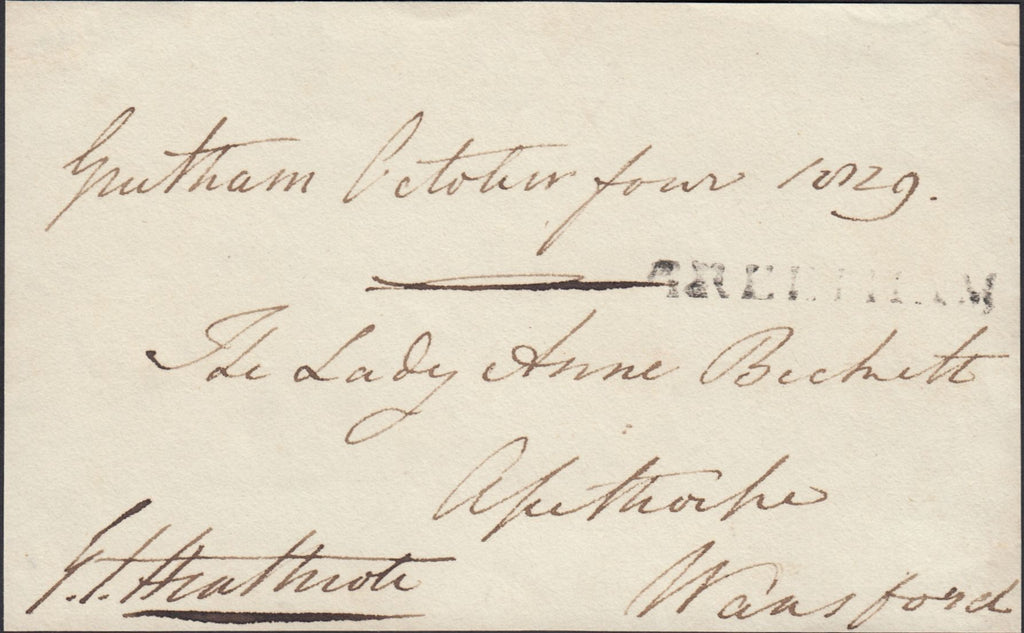 Greetham October four 1829.
GREETHAM
The Lady Anne Beckett
Apethorpe
G. J. Heathcote
Wansford